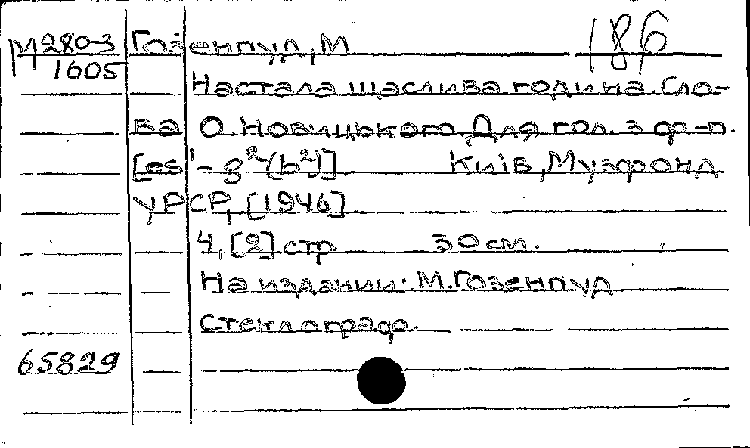 М280-3 Гозенпуд, М 186
1605
Настала щаслива година. Сло-
ва О. Новицького. Для гол. з ф-п.
[es¹-g²(b²)] Київ, Музфонд
УРСР, [1946]
4, [2] стр 30 см.
На издании: М. Гозенпуд
стеклограф.
65829